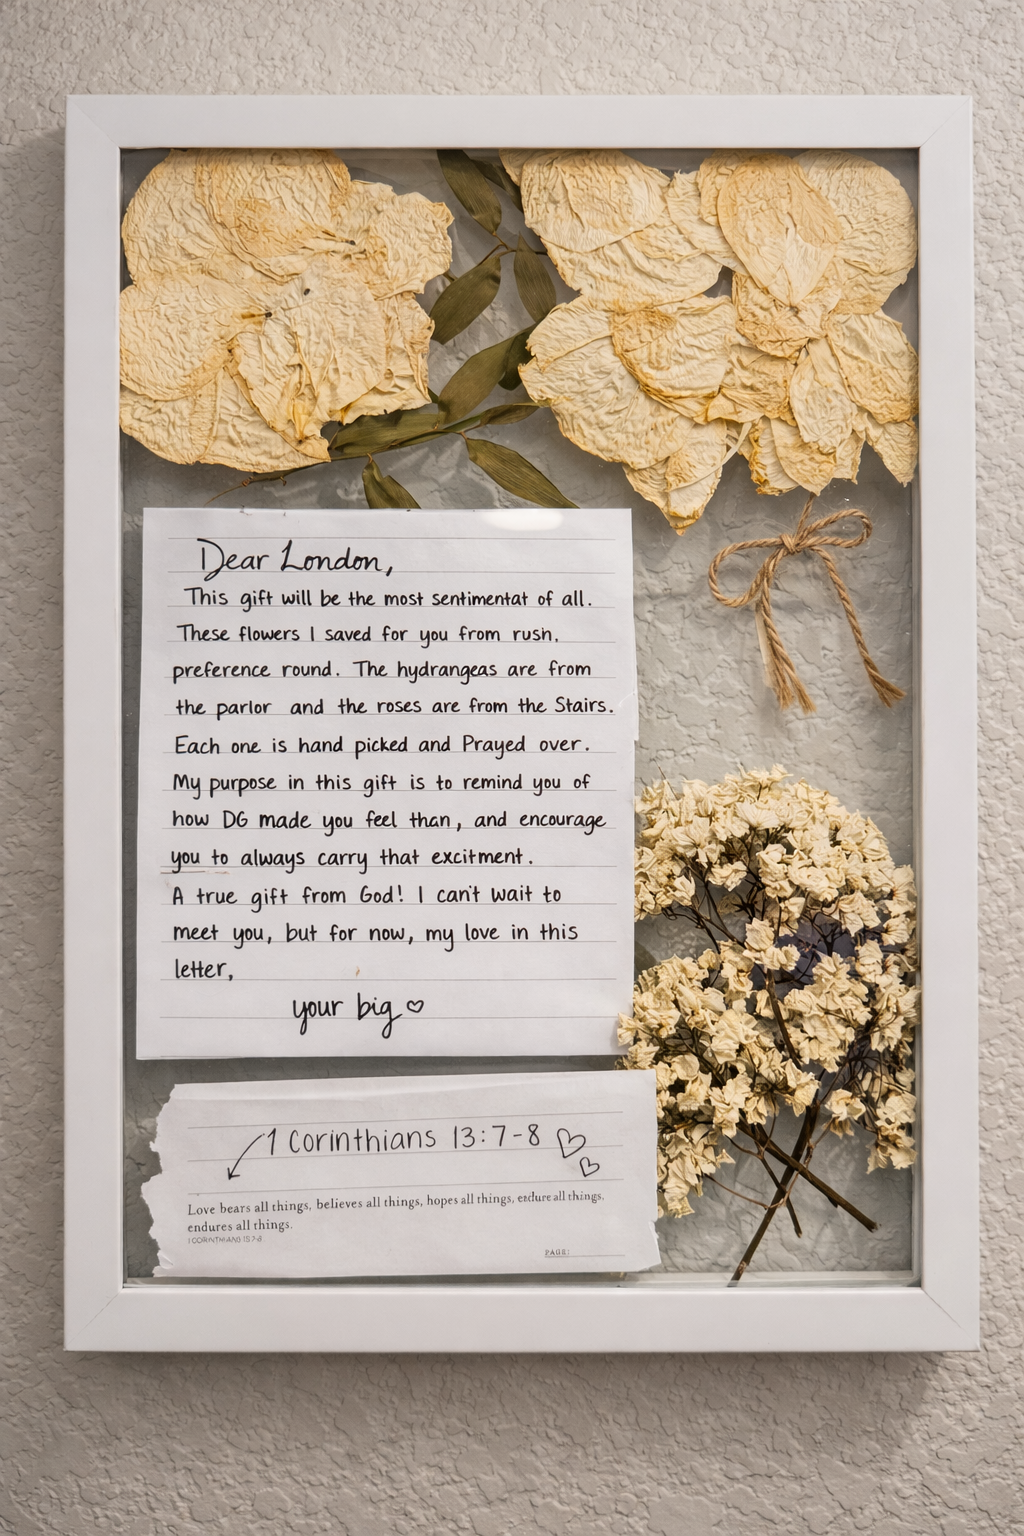 Dear London,
This gift will be the most sentimentat of all.
These flowers I saved for you from rush,
preference round. The hydrangeas are from
the parlor and the roses are from the Stairs.
Each one is hand picked and Prayed over.
My purpose in this gift is to remind you of
how DG made you feel than, and encourage
you to always carry that excitment.
A true gift from God! I can't wait to
meet you, but for now, my love in this
letter,
your big ♡
1 Corinthians 13:7-8 ♡ ♡
Love bears all things, believes all things, hopes all things, endure all things,
endures all things.
1 CORINTHIANS 15 7-8
PAGE: